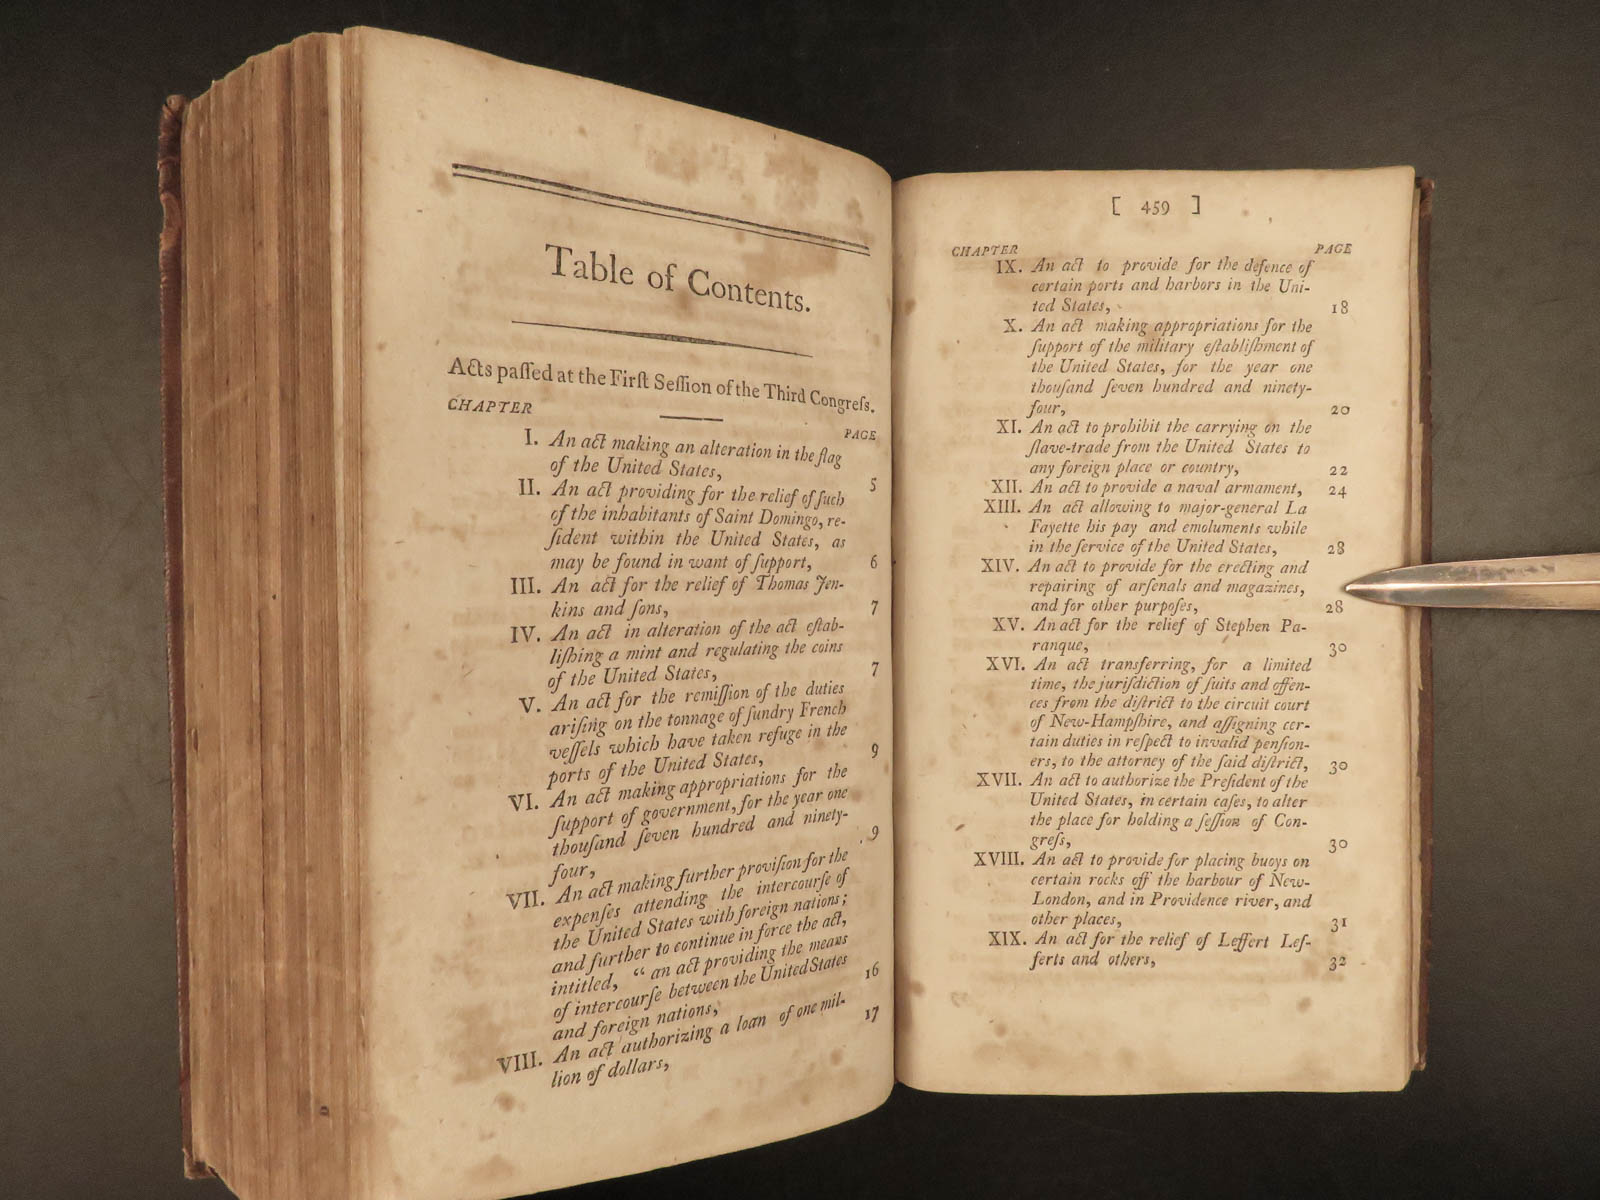 Table of Contents.
Acts paſſed at the Firſt Seſſion of the Third Congreſs.
CHAPTER
PAGE
I. An act making an alteration in the flag
of the United States, 5
II. An act providing for the relief of ſuch
of the inhabitants of Saint Domingo, re-
ſident within the United States, as
may be found in want of ſupport, 6
III. An act for the relief of Thomas Jen-
kins and ſons, 7
IV. An act in alteration of the act eſtab-
liſhing a mint and regulating the coins
of the United States, 7
V. An act for the remiſſion of the duties
ariſing on the tonnage of ſundry French
veſſels which have taken refuge in the
ports of the United States, 9
VI. An act making appropriations for the
ſupport of government, for the year one
thouſand ſeven hundred and ninety-
four, 9
VII. An act making further proviſion for the
expenſes attending the intercourſe of
the United States with foreign nations;
and further to continue in force the act,
intitled, “ an act providing the means
of intercourſe between the United States
and foreign nations, 16
VIII. An act authorizing a loan of one mil-
lion of dollars, 17
[ 459 ]
CHAPTER PAGE
IX. An act to provide for the defence of
certain ports and harbors in the Uni-
ted States, 18
X. An act making appropriations for the
ſupport of the military eſtabliſhment of
the United States, for the year one
thouſand ſeven hundred and ninety-
four, 20
XI. An act to prohibit the carrying on the
ſlave-trade from the United States to
any foreign place or country, 22
XII. An act to provide a naval armament, 24
XIII. An act allowing to major-general La
Fayette his pay and emoluments while
in the ſervice of the United States, 28
XIV. An act to provide for the erecting and
repairing of arſenals and magazines,
and for other purpoſes, 28
XV. An act for the relief of Stephen Pa-
ranque, 30
XVI. An act transferring, for a limited
time, the juriſdiction of ſuits and offen-
ces from the diſtrict to the circuit court
of New-Hampſhire, and aſſigning cer-
tain duties in reſpect to invalid penſion-
ers, to the attorney of the ſaid diſtrict, 30
XVII. An act to authorize the Preſident of the
United States, in certain caſes, to alter
the place for holding a ſeſſion of Con-
greſs, 30
XVIII. An act to provide for placing buoys on
certain rocks off the harbour of New-
London, and in Providence river, and
other places, 31
XIX. An act for the relief of Leffert Lef-
ferts and others, 32